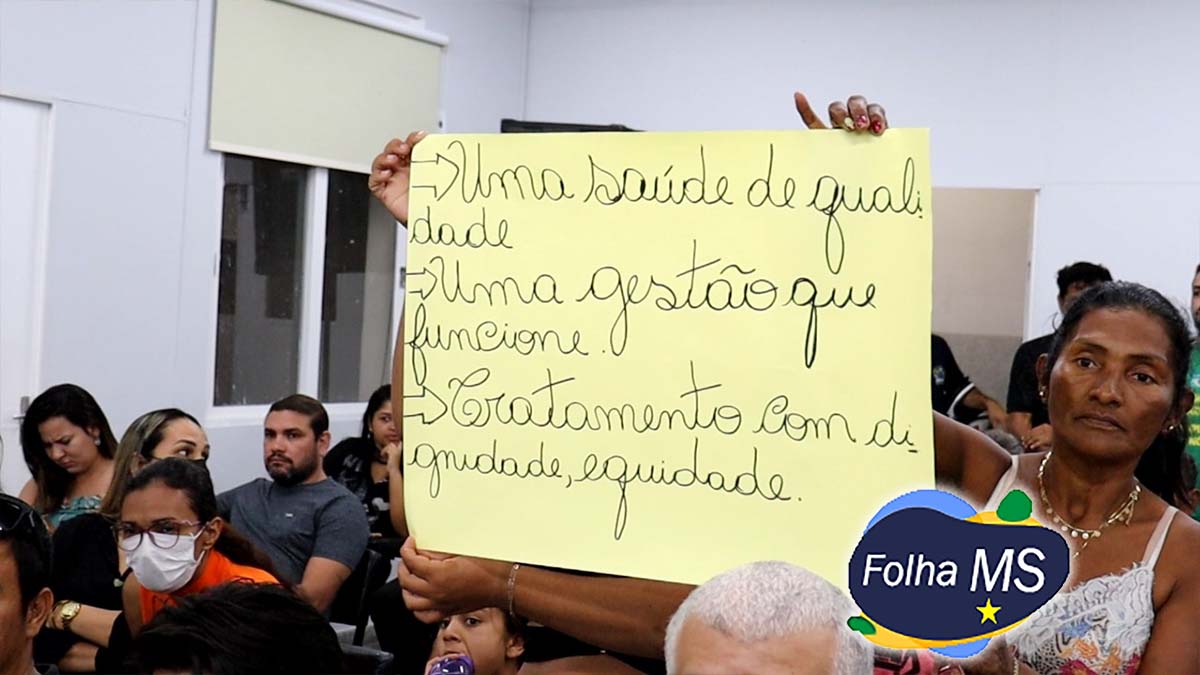 ⇒Uma saúde de quali-
dade
⇒Uma gestão que
funcione.
⇒Tratamento com di-
gnidade, equidade.
Folha MS